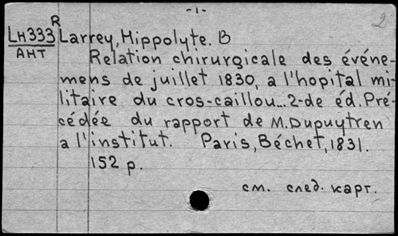 -1-
2
R
LH333 Larrey, Hippolyte. B
АНТ
Relation chirurgicale des événe-
mens de juillet 1830, a l'hopital mi-
litaire du cros-caillou...2-de éd. Pré-
cédée du rapport de M. Dupuytren
a l'institut. Paris, Béchet, 1831.
152 p.
см. след. карт.